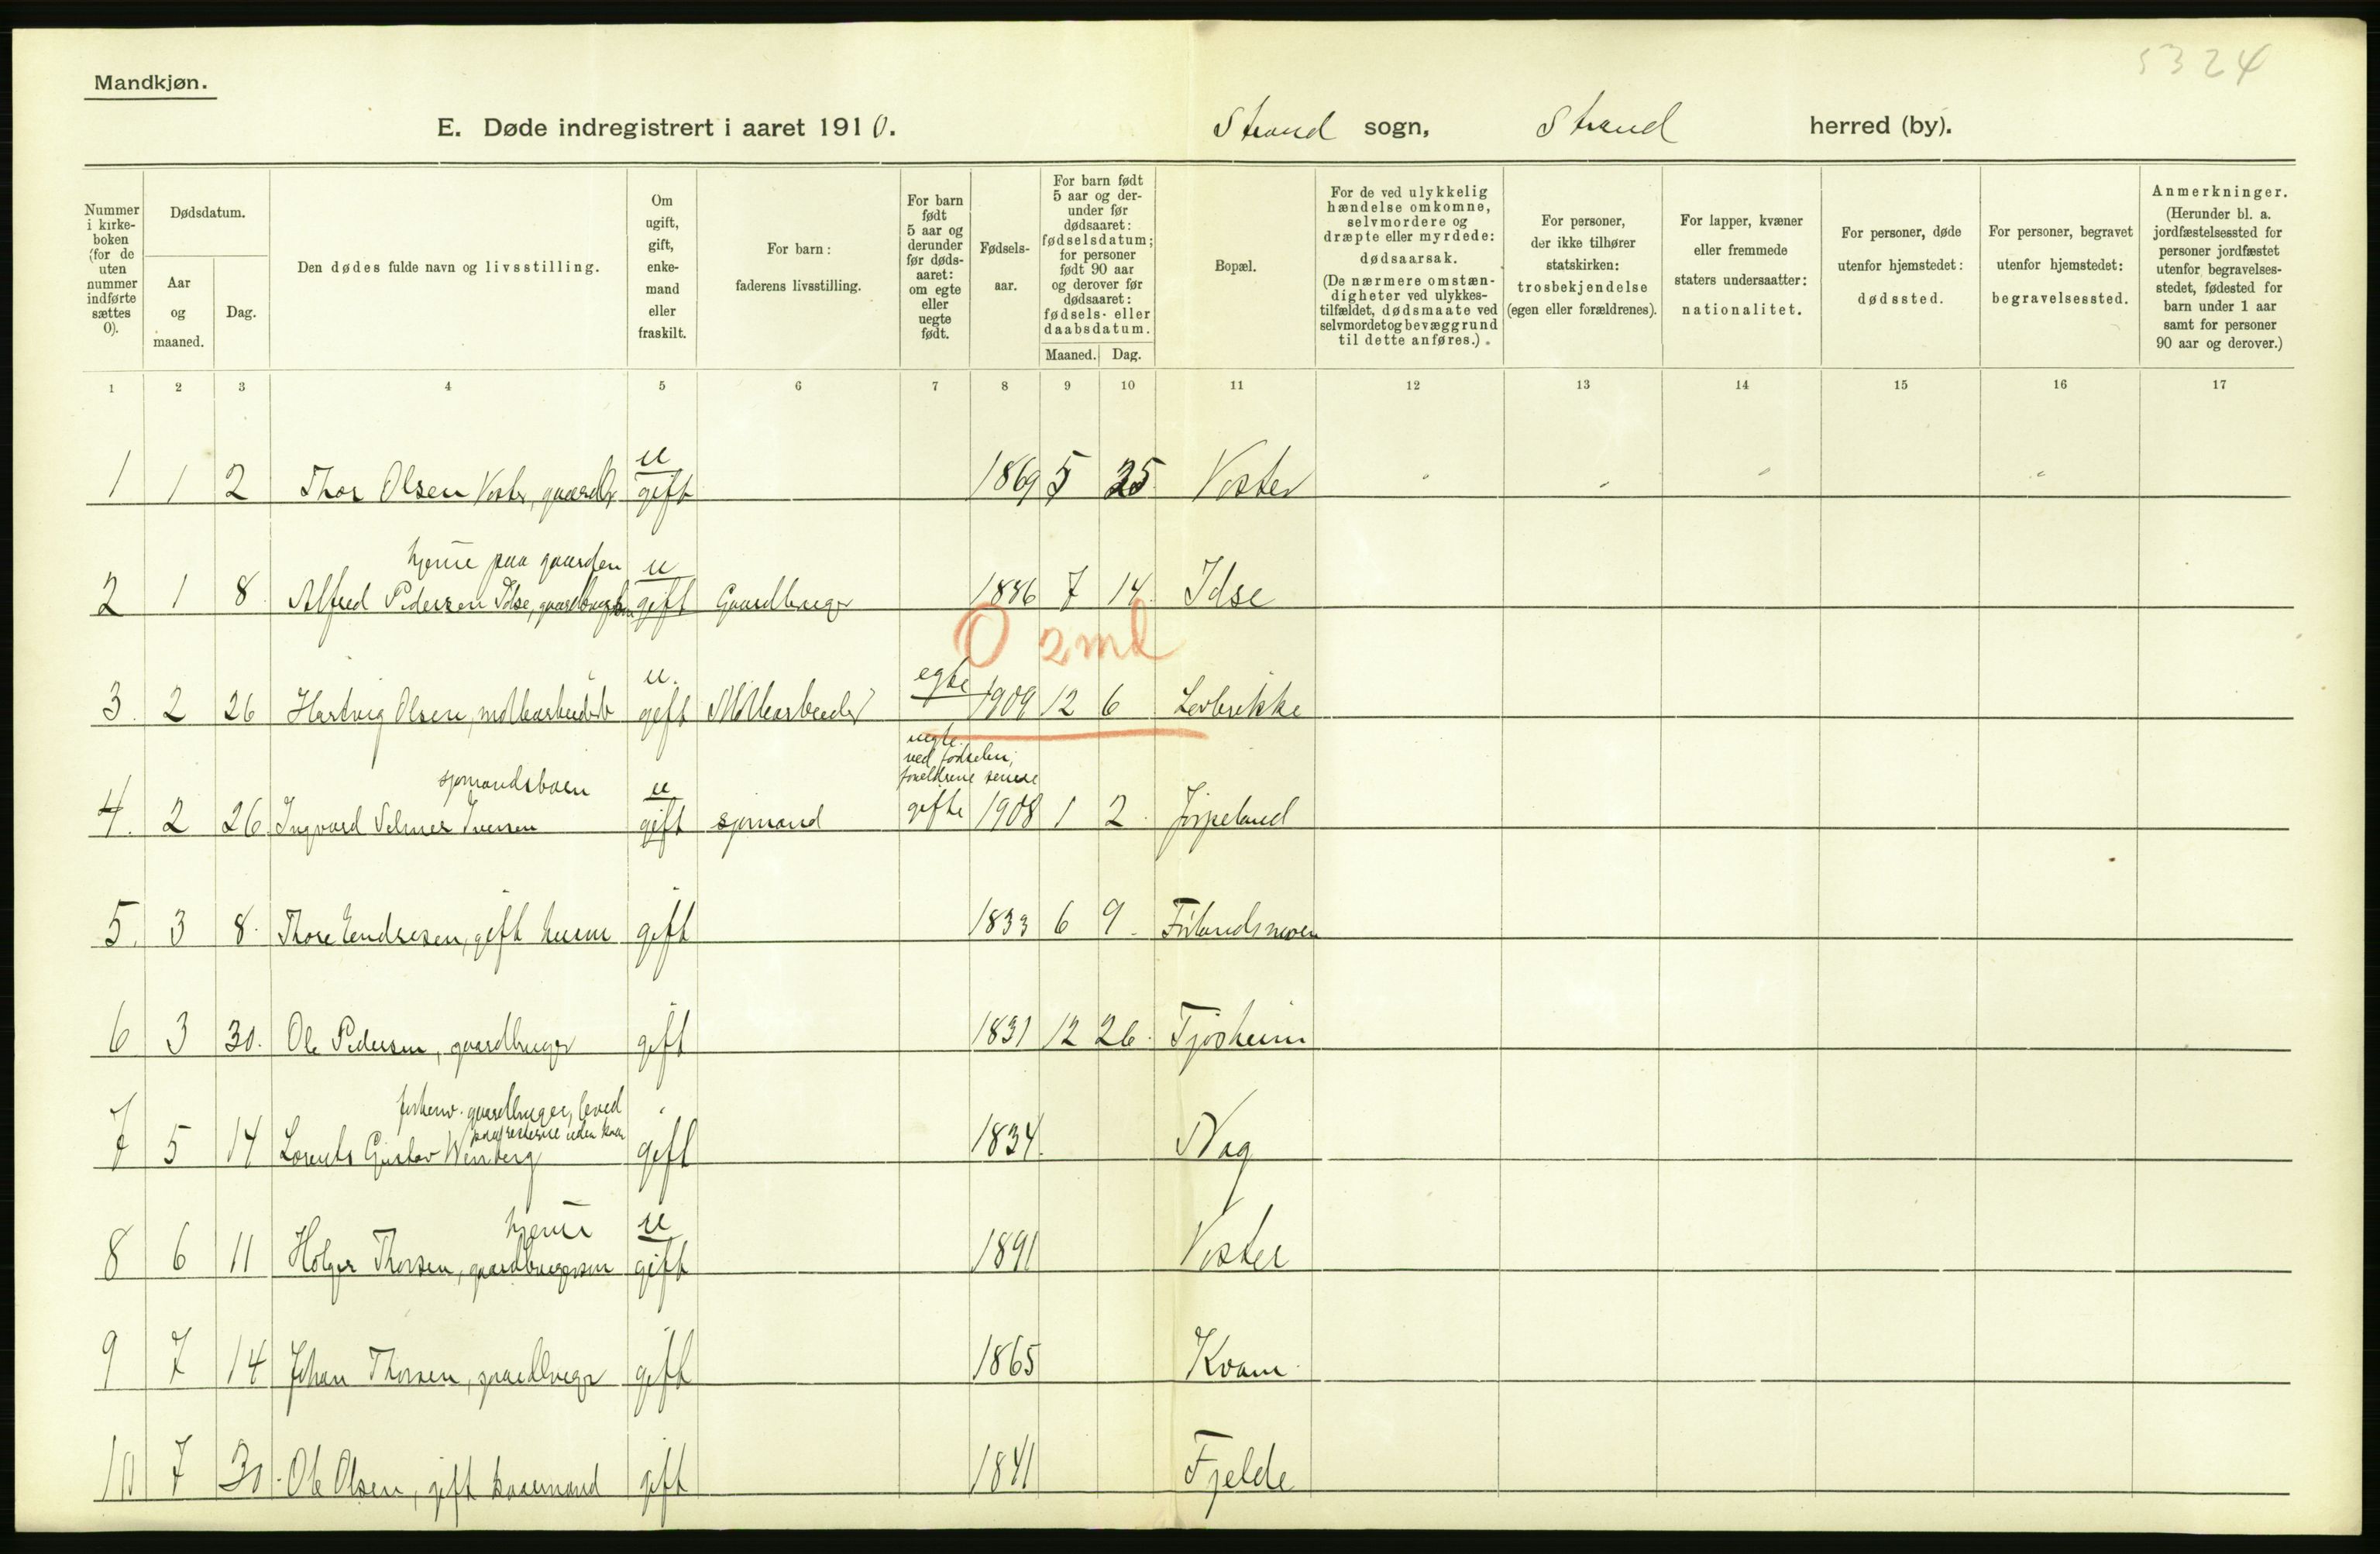 5324
Mandkjøn.
E. Døde indregistrert i aaret 1910. Strand sogn, Strand herred (by).
Nummer i kirke-boken (for de uten nummer indførte sættes 0).
Dødsdatum.
Aar og maaned.
Dag.
Den dødes fulde navn og livsstilling.
Om ugift, gift, enke-mand eller fraskilt.
For barn: faderens livsstilling.
For barn født 5 aar og derunder før døds-aaret: om egte eller uegte født.
Fødsels-aar.
For barn født 5 aar og der-under før dødsaaret: fødselsdatum; for personer født 90 aar og derover før dødsaaret: fødsels- eller daabsdatum.
Maaned. Dag.
Bopæl.
For de ved ulykkelig hændelse omkomne, selvmordere og dræpte eller myrdede: dødsaarsak. (De nærmere omstæn-digheter ved ulykkes-tilfældet, dødsmaate ved selvmord og bevæggrund til dette anføres.)
For personer, der ikke tilhører statskirken: trosbekjendelse (egen eller forældrenes).
For lapper, kvæner eller fremmede staters undersaatter: nationalitet.
For personer, døde utenfor hjemstedet: dødssted.
For personer, begravet utenfor hjemstedet: begravelsessted.
Anmerkninger. (Herunder bl. a. jordfæstelsessted for personer jordfæstet utenfor begravelses-stedet, fødested for barn under 1 aar samt for personer 90 aar og derover.)
1 2 3 4 5 6 7 8 9 10 11 12 13 14 15 16 17
u
1 1 2 Thor Olsen Voster, gaardbr. gift 1869 5 25 Voster
hjemme paa gaarden u
2 1 8 Alfred Pedersen Idse, gaardbrugersøn gift Gaardbruger 1886 7 14. Idse
0 2 md
u. egte
3. 2 26 Hartvig Olsen, gift 1909 12 6
uegte
ved fødselen,
forældrene senere
sjømandsbarn u
4. 2 26. Ingvard Selmer Iversen gift sjømand gifte 1908 1 2. Jørpeland
5. 3 8. Thore Endresen, gift husm gift 1833 6 9.
6 3 30. Ole Pedersen, gaardbruger gift 1831 12 26. Tjøsheim
forhenv. gaardbruger, leved
7 5 14 Lorents Gustav gift 1834. Nag
hjemme u
8 6 11 Holger Thorsen, gaardbrugersøn gift 1891 Voster
9 7 14 Johan Thorsen, gaardbruger gift 1865 Kvam
10 7 30. Ole Olsen, gift gift 1841 Fjelde